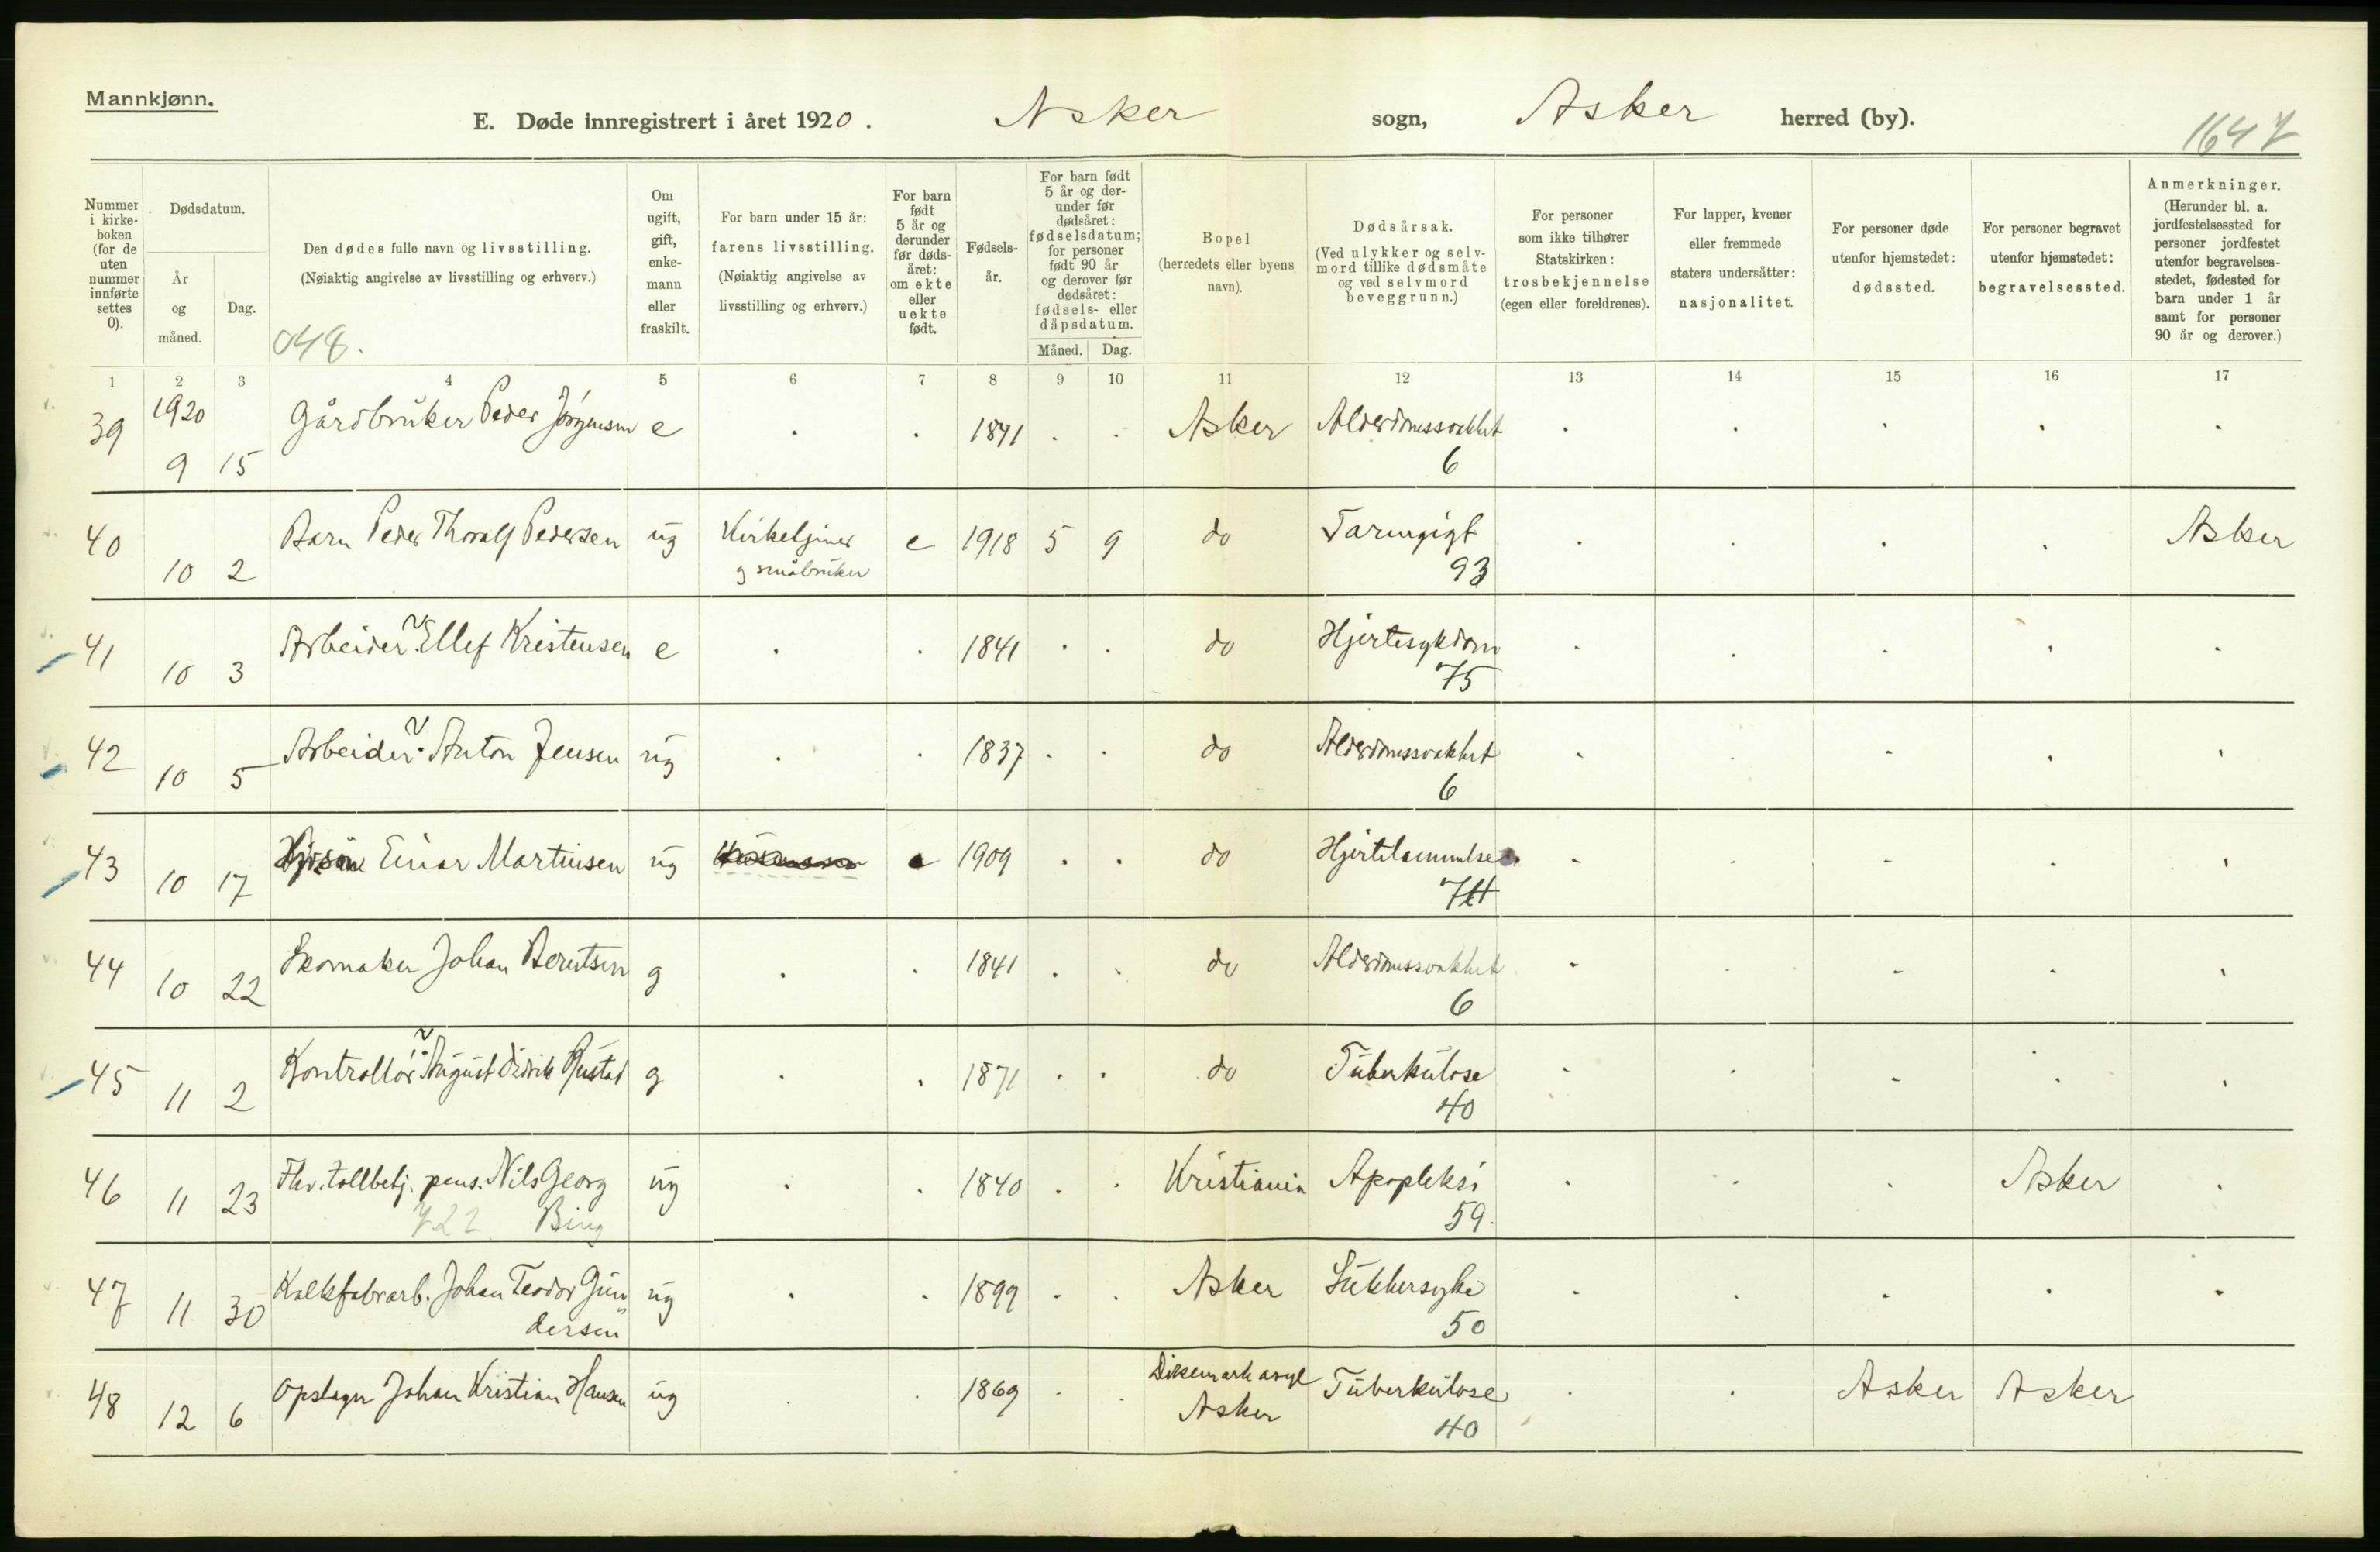 Mannkjønn.
E. Døde innregistrert i året 1920. Asker sogn, Asker herred (by).
1647
Nummer i kirke-boken (for de uten nummer innførte settes 0).
Dødsdatum.
År og måned.
Dag.
Den dødes fulle navn og livsstilling.
(Nøiaktig angivelse av livsstilling og erhverv.)
048.
Om ugift, gift, enke-mann eller fraskilt.
For barn under 15 år: farens livsstilling. (Nøiaktig angivelse av livsstilling og erhverv.)
For barn født 5 år og derunder før døds-året: om ekte eller uekte født.
Fødsels-år.
For barn født 5 år og der-under før dødsåret: fødselsdatum; for personer født 90 år og derover før dødsåret: fødsels- eller dåpsdatum.
Måned. Dag.
Bopel (herredets eller byens navn).
Dødsårsak. (Ved ulykker og selv-mord tillike dødsmåte og ved selvmord beveggrunn.)
For personer som ikke tilhører Statskirken: trosbekjennelse (egen eller foreldrenes).
For lapper, kvener eller fremmede staters undersåtter: nasjonalitet.
For personer døde utenfor hjemstedet: dødssted.
For personer begravet utenfor hjemstedet: begravelsessted.
Anmerkninger. (Herunder bl. a. jordfestelsessted for personer jordfestet utenfor begravelses-stedet, fødested for barn under 1 år samt for personer 90 år og derover.)
1 2 3 4 5 6 7 8 9 10 11 12 13 14 15 16 17
39 1920 9 15 Gårdbruker Peder Jørgensen e . . 1841 . . Asker Alderdomssvakhet 6 . . . . .
40 10 2 Barn Peder Thoralf Pedersen ug Kirketjener og småbruker e 1918 5 9 do Tarmgigt 93 . . . . Asker
41 10 3 Arbeider Ellef Kristensen e . . 1841 . . do Hjertesykdom 75 . . . . .
42 10 5 Arbeider Anton Jensen ug . . 1837 . . do Alderdomssvakhet 6 . . . . .
43 10 17 Einar Martinsen ug 1909 . . do Hjertelammelse . . . . .
44 10 22 Skomaker Johan Berntsen g . . 1841 . . do Alderdomssvakhet 6 . . . . .
45 11 2 Kontrollør August Didrik Rustad g . . 1871 . . do Tuberkulose 40 . . . . .
46 11 23 Fhv. tollbetj. pens. Nils Georg Bing 722 ug . . 1840 . . Kristiania Apopleksi 59 . . . Asker .
47 11 30 Kalkfabrarb. Johan Teodor Gun dersen ug . . 1899 . . Asker Sukkersyke 50 . . . . .
48 12 6 Opsteger Johan Kristian Hansen ug . . 1869 . . Dikemark asyl Asker Tuberkulose 40 . . Asker Asker